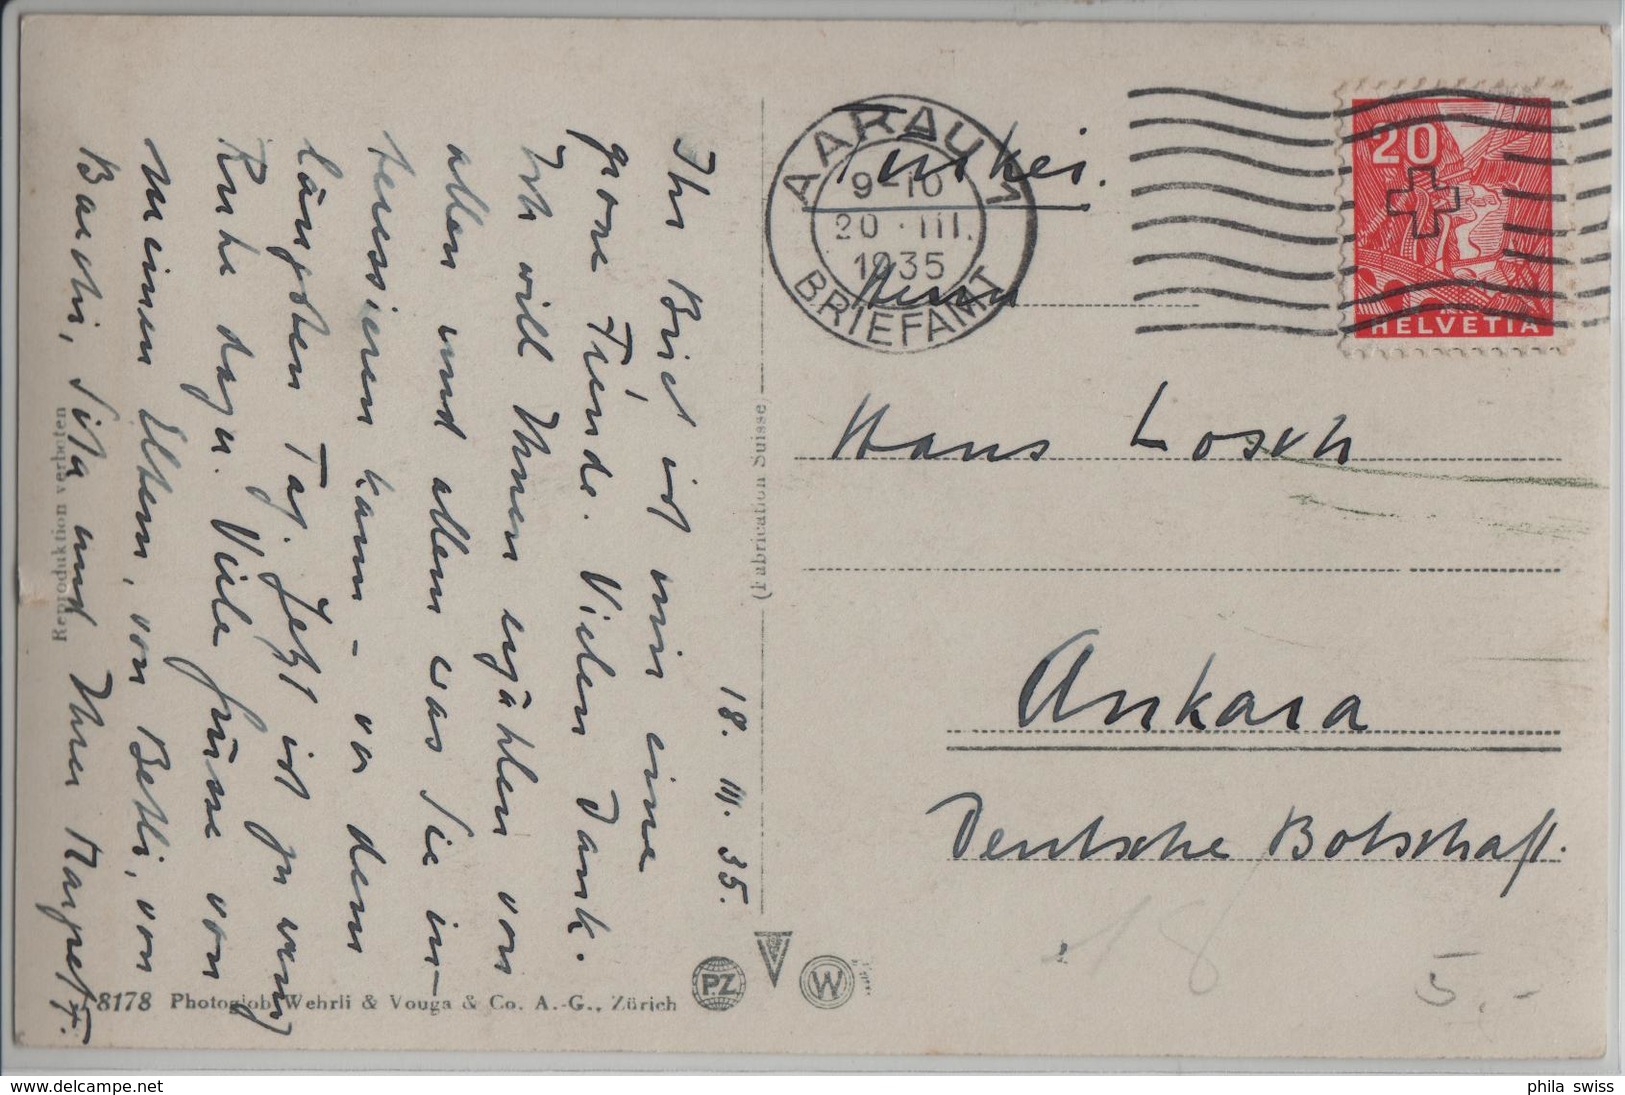 18. III. 35.
Ihr Brief ist mir eine
grosse Freude. Vielen Dank.
Ich will Ihnen erzählen von
allem und allem was Sie in-
teressieren kann – vor dem
längsten Tag. Jetzt ist zu wenig
Ruhe dazu. Viele Grüsse von
meinen Eltern, von Bethi, von
Bauchi, Sita und Ihrer Margret F.
Reproduktion verboten
8178 Photoglob Wehrli & Vouga & Co. A.-G., Zürich
(Fabrication Suisse)
PZ
W
AARAU 1
9-10
20.III.
1935
BRIEFAMT
20
HELVETIA
Türkei.
Herrn
Hans Losch
Ankara
Deutsche Botschaft.
18
5.-
www.delcampe.net
phila_swiss